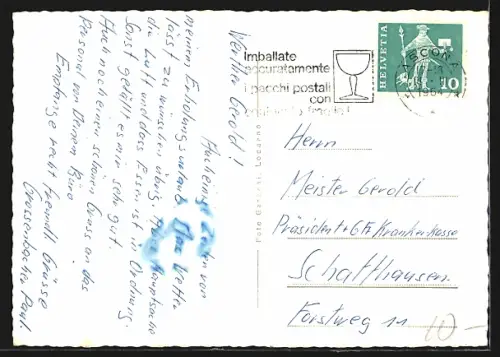 Werter Gerold!
Auch einige Zeilen von
meinem Erholungsurlaub. Das Wetter
lässt zu wünschen übrig. Hauptsache
die Luft und das Essen ist in Ordnung.
Sonst gefällt es mir sehr gut.
Auch noch einen schönen Gruss an das
Personal von Deinem Büro
Empfange recht freundl. Grüsse
Grossenbacher Paul.
Imballate
accuratamente
i pacchi postali
con
HELVETIA
10
ASCONA
Foto Locarno
Herrn
Meister Gerold
Präsident der Krankenkasse
Schaffhausen
Forstweg 11
10-